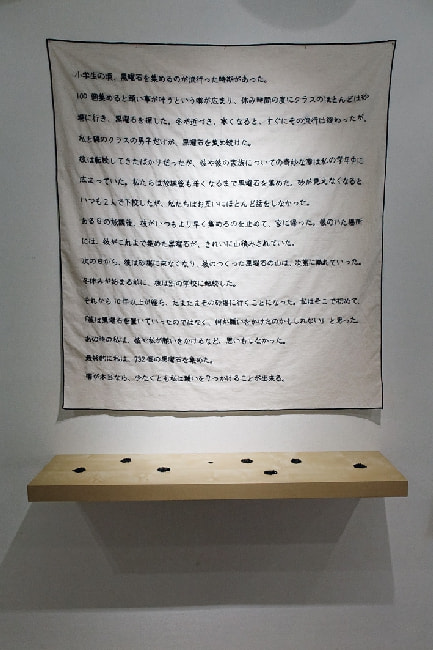 小学生の頃、黒曜石を集めるのが流行った時期があった。
100個集めると願い事が叶うという噂が広まり、休み時間の度にクラスのほとんどは砂
場に行き、黒曜石を探した。冬が近づき、寒くなると、すぐにその流行は終わったが、
私と隣のクラスの男子だけが、黒曜石を集め続けた。
彼は転校してきたばかりだったが、彼や彼の家族についての奇妙な噂は私の学年中に
広まっていた。私たちは放課後も暗くなるまで黒曜石を集めた。砂が見えなくなると
いつも2人で下校したが、私たちはお互いにほとんど話をしなかった。
ある日の放課後、彼がいつもより早く集めるのを止めて、家に帰った。彼のいた場所
には、彼がこれまで集めた黒曜石が、きれいに山積みされていた。
次の日から、彼は砂場に来なくなり、彼のつくった黒曜石の山は、次第に崩れていった。
冬休みが始まる前に、彼は別の学校に転校した。
それから10年以上が経ち、たまたまその砂場に行くことになった。私はそこで初めて、
「彼は黒曜石を置いていったのではなく、何か願いをかけたのかもしれない」と思った。
あの時の私は、彼や彼が願いをかけるなど、思いもしなかった。
最終的に私は、792個の黒曜石を集めた。
噂が本当なら、少なくとも私は願いを7つかけることが出来る。